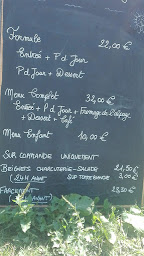 Formule 22,00€
Entrée + P d Jour
P d Jour + Dessert
Menu Complet 32,00€
Entrée + P d Jour + Fromage de l'alpage
+ Dessert + Café
Menu Enfant 10,00€
SUR COMMANDE UNIQUEMENT
BEIGNETS CHARCUTERIE-SALADE 21,50€
(24H AVANT) SUP TOMME BLANCHE 3,00€
FARCEMENT 23,50€
AVANT)